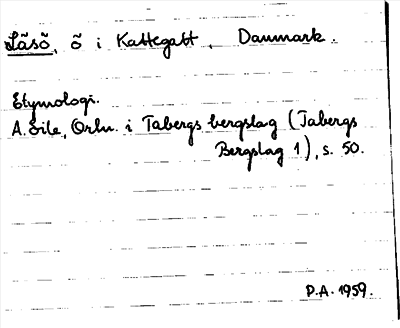 Läsö, ö i Kattegatt, Danmark.
Etymologi.
A. Eile, Ortn. i Tabergs bergslag (Tabergs
Bergslag 1), s. 50.
P.A. 1959.